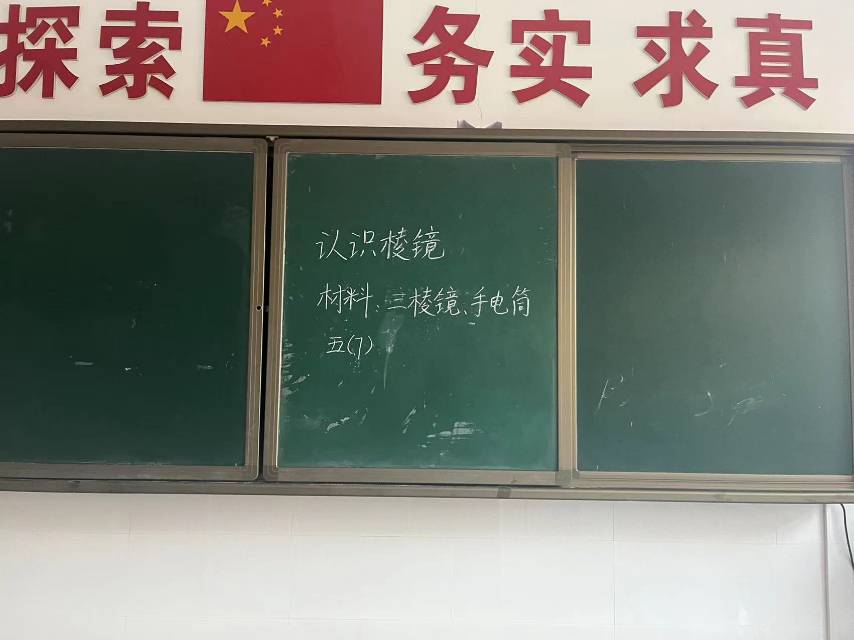 探索 务实 求真
认识棱镜
材料：三棱镜、手电筒
五(7)